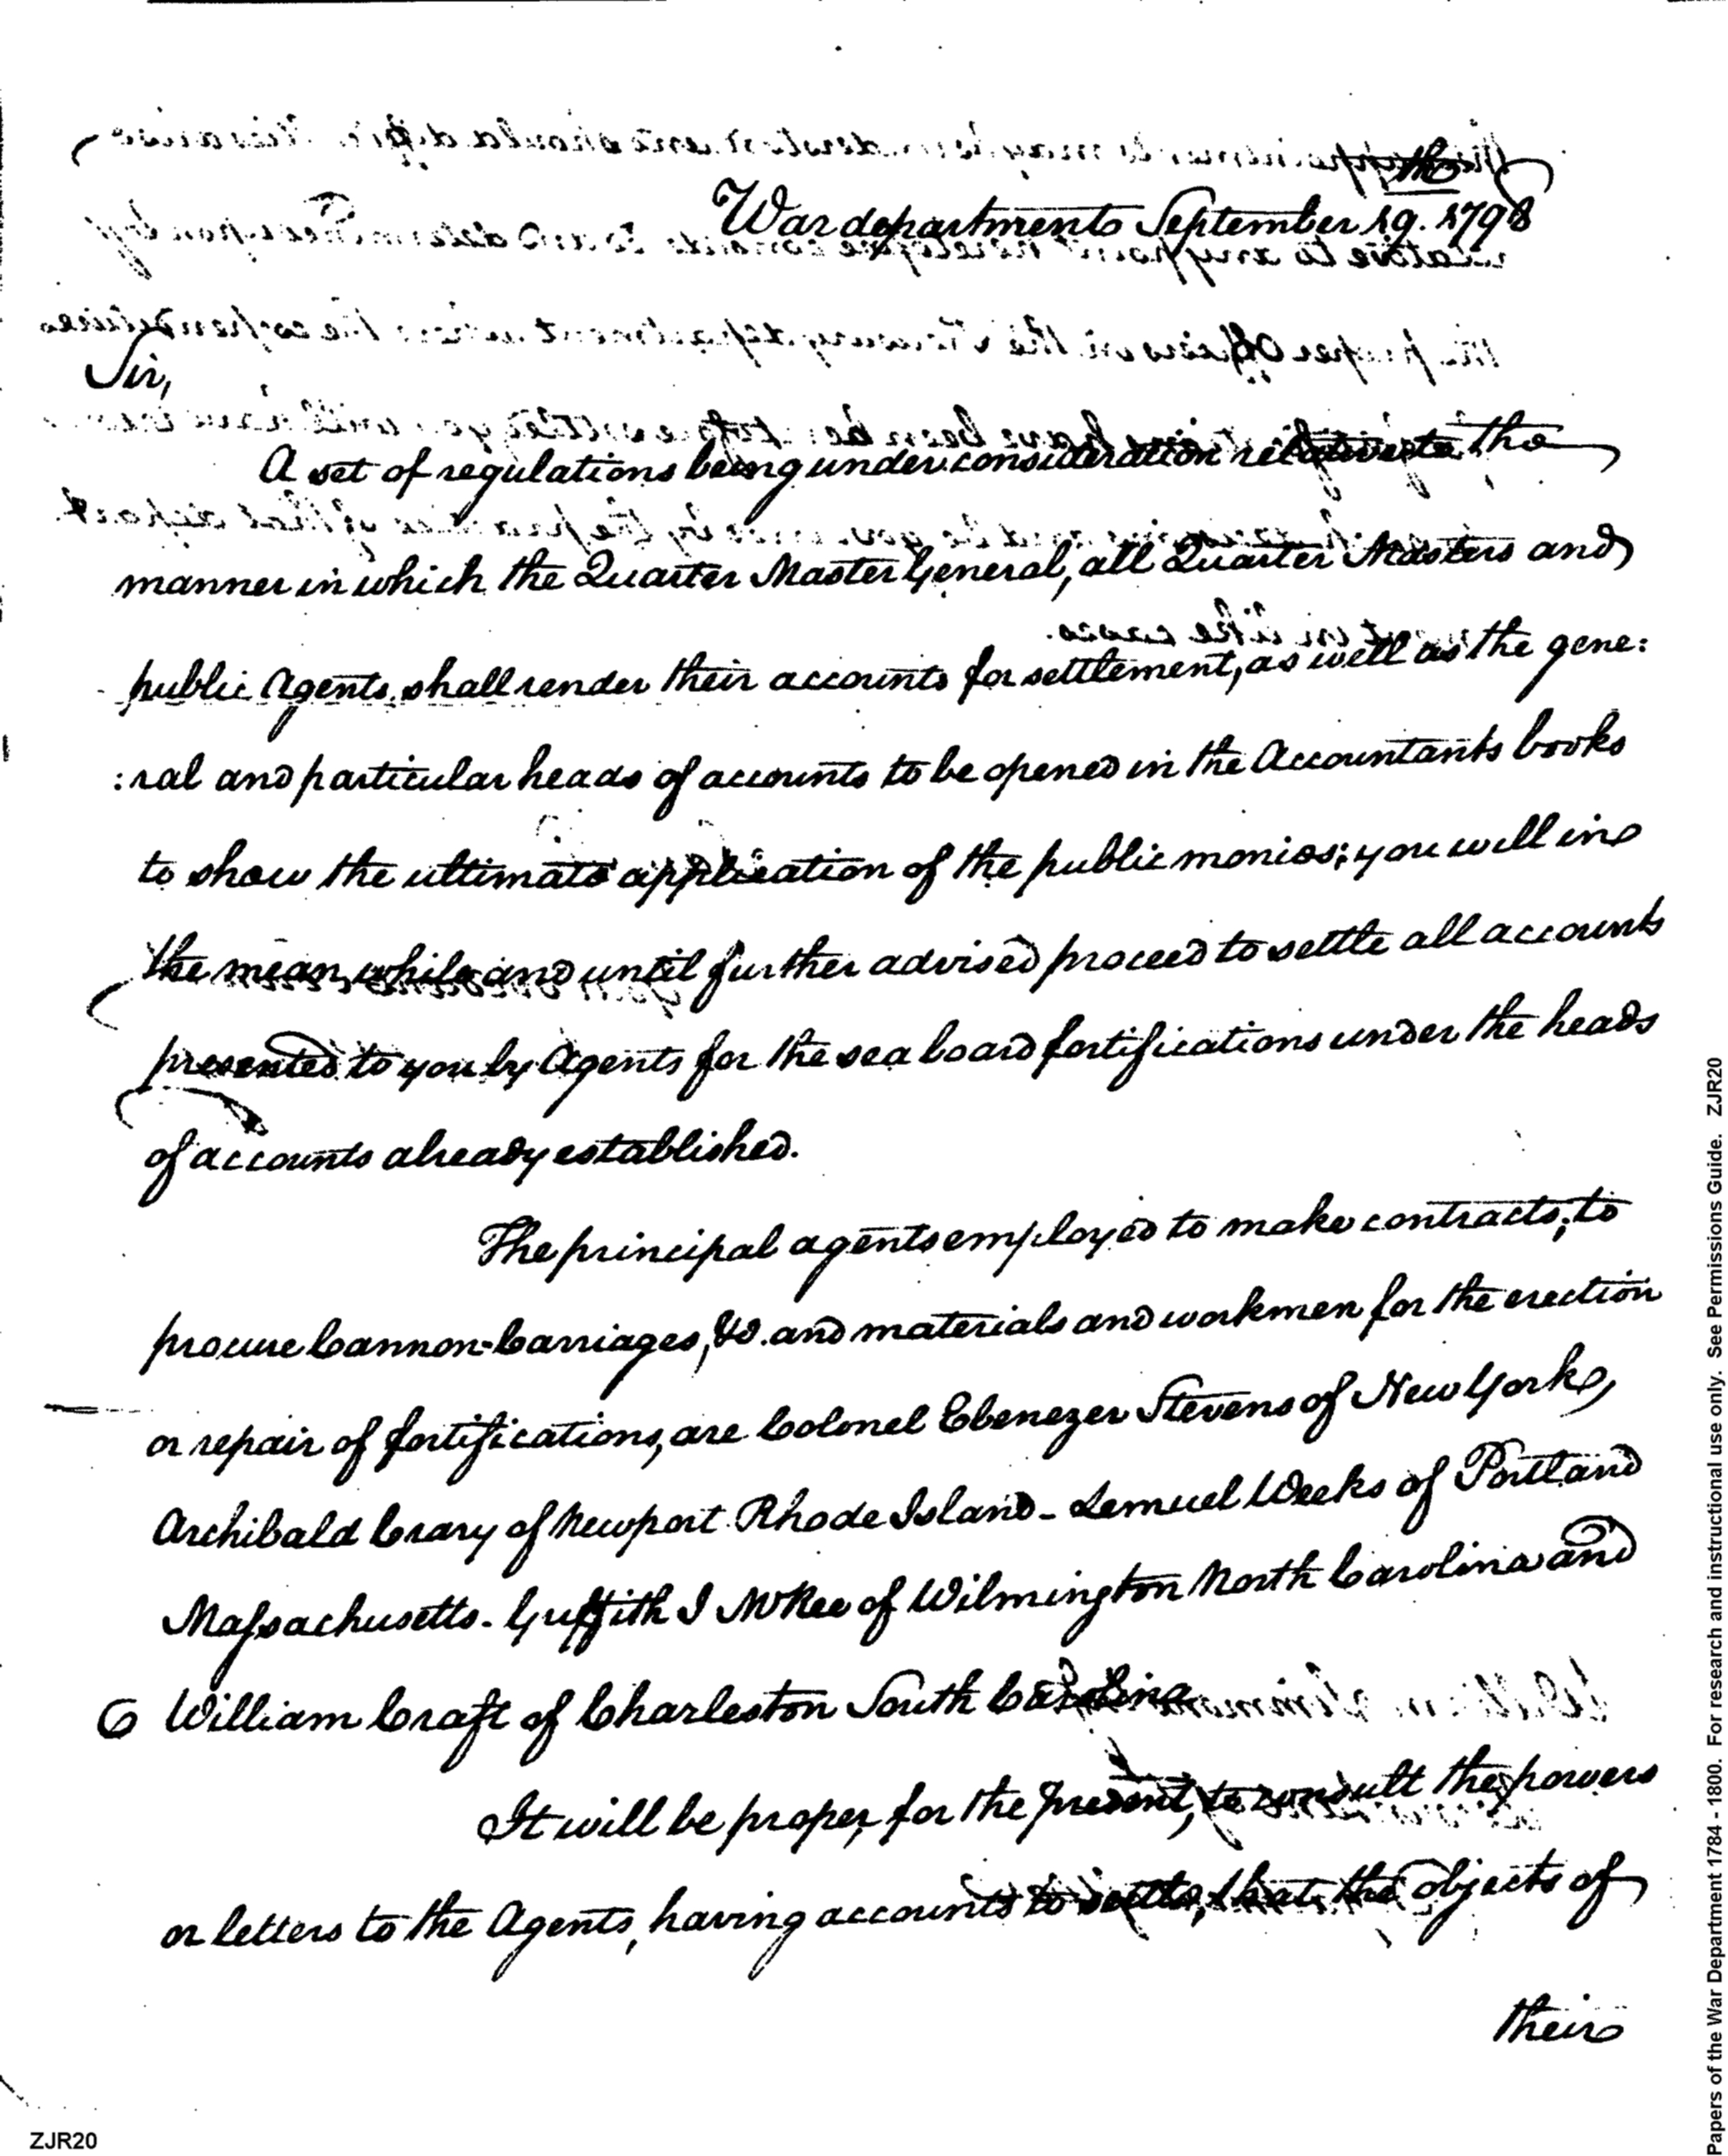 War department September 19th. 1798
Sir,
A set of regulations being under consideration relative to the
manner in which the Quarter Master General, all Quarter Masters and
public Agents shall render their accounts for settlement, as well as the gene:
:ral and particular heads of accounts to be opened in the Accountants books
to show the ultimate application of the public monies; you will in
the mean while and until further advised proceed to settle all accounts
presented to you by Agents for the sea board fortifications under the heads
of accounts already established.
The principal agents employed to make contracts, to
procure Cannon-Carriages, &c. and materials and workmen for the erection
or repair of fortifications, are Colonel Ebenezer Stevens of New York,
Archibald Crary of Newport Rhode Island - Lemuel Weeks of Portland
Massachusetts. Griffith J McRee of Wilmington North Carolina and
William Craft of Charleston South Carolina
It will be proper, for the present, to consult the powers
or letters to the Agents, having accounts to settle, that the objects of
their
ZJR20
Papers of the War Department 1784 - 1800. For research and instructional use only. See Permissions Guide. ZJR20